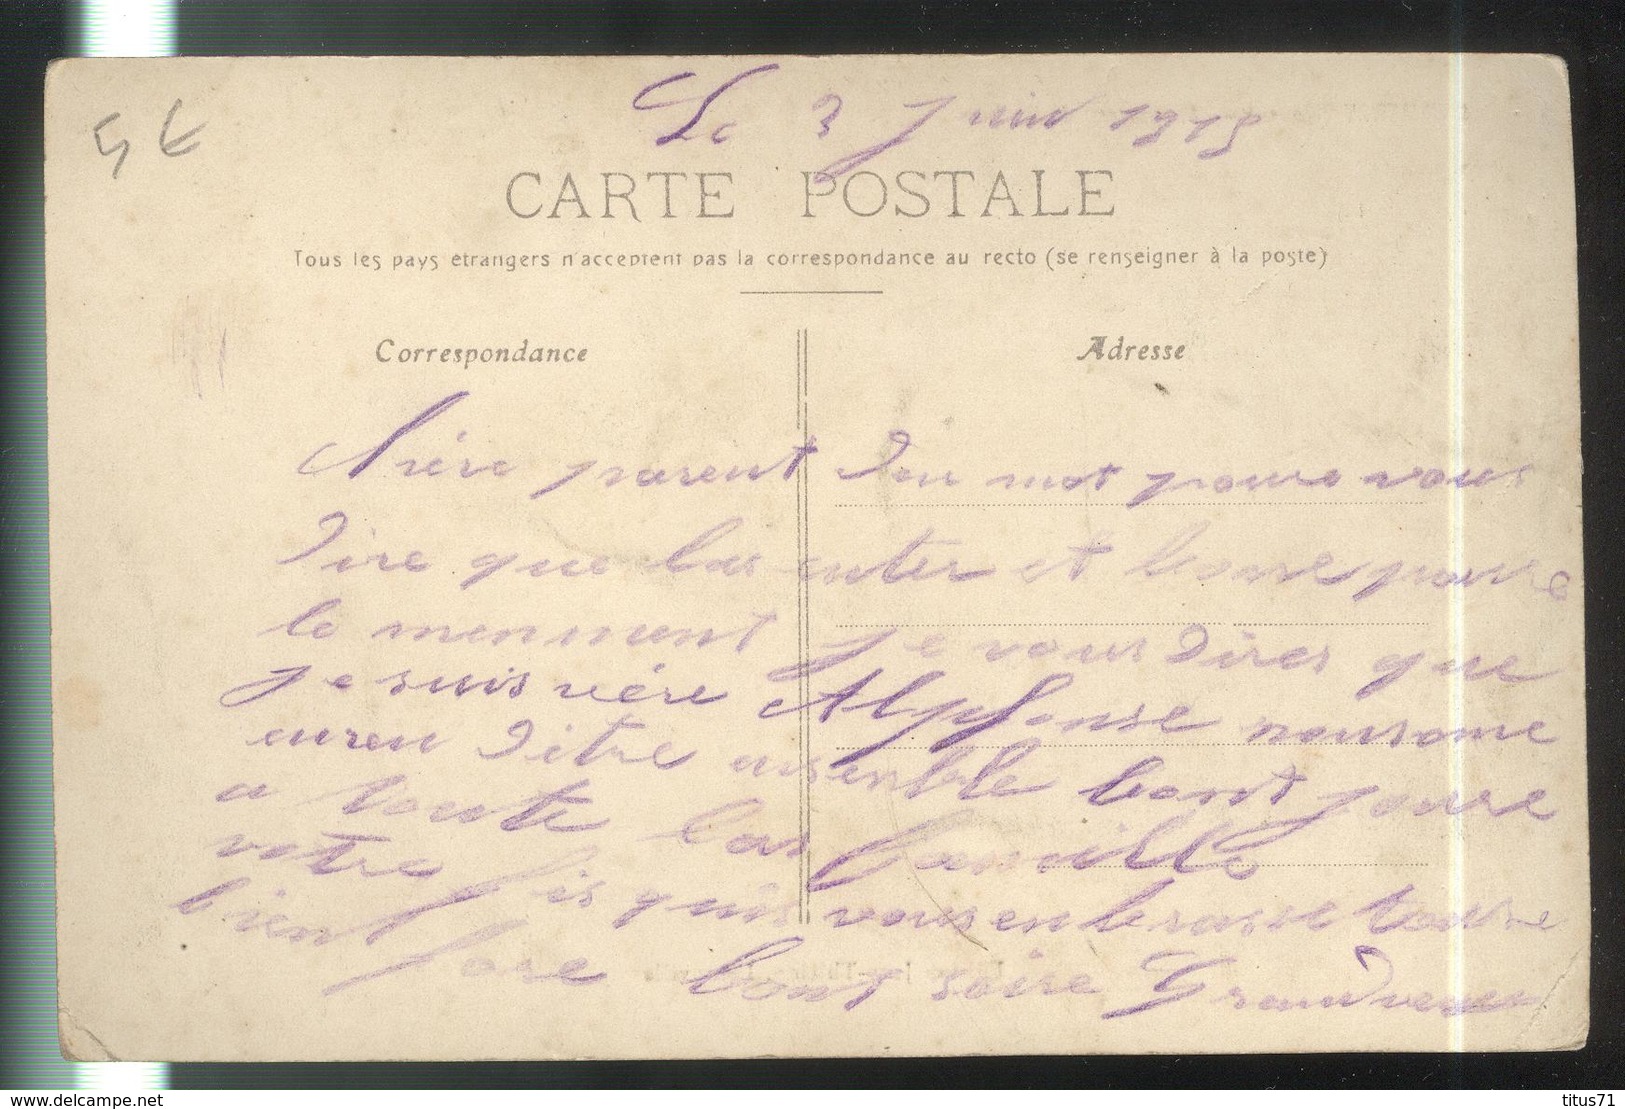 5 €
Le 3 Juin 1915
CARTE POSTALE
Tous les pays étrangers n'acceptent pas la correspondance au recto (se renseigner à la poste)
Correspondance
Adresse
parent Deu mot poure vous
Dire que las enter et bone poure
le menment je vous Dires que
je suis vére Alphonse nousome
enren Ditre ensenble bont joure
a toute las famille
votre fis quis vous enbrasse toutre
bient fore bont soire Grandvenen
delcampe.net
titus71